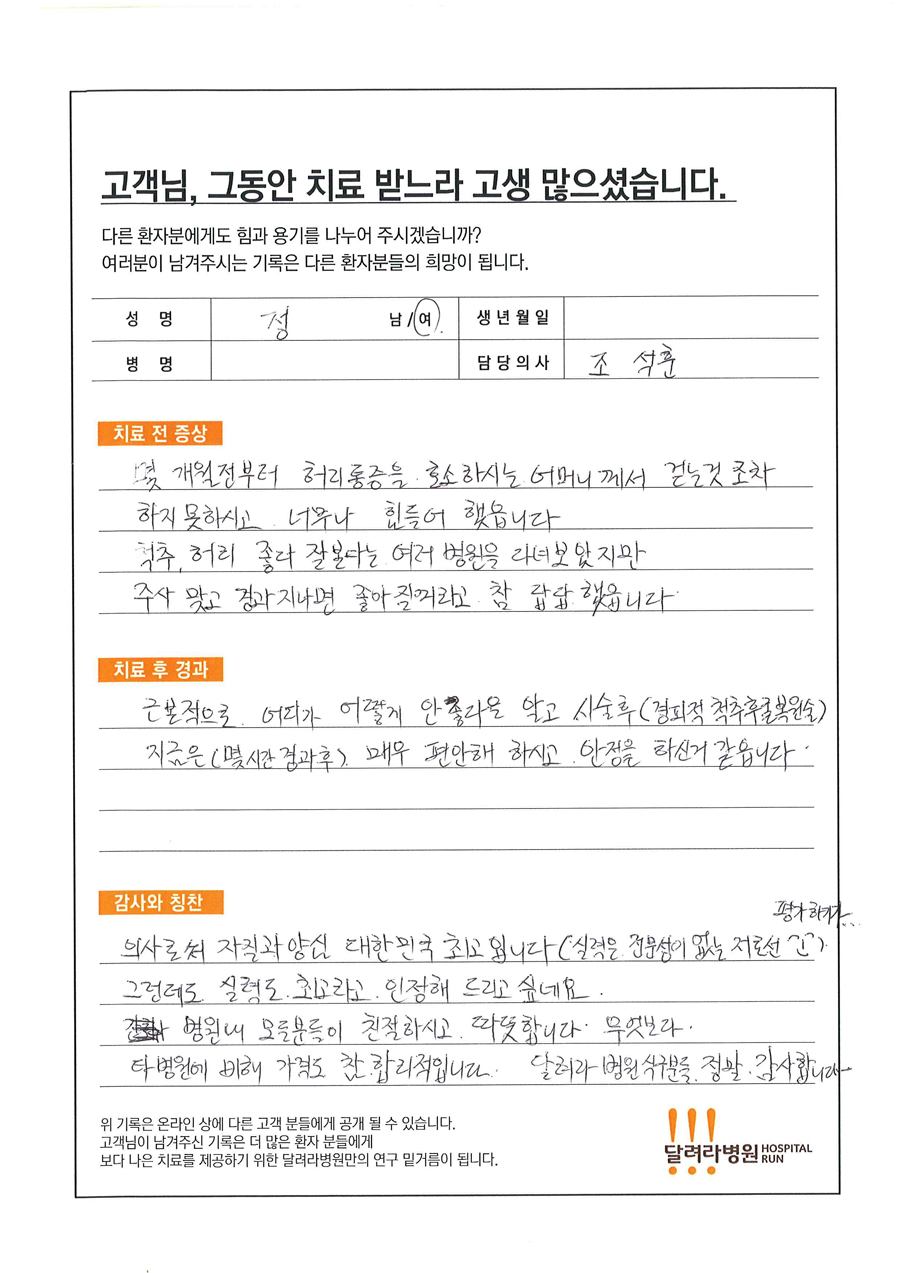 고객님, 그동안 치료 받느라 고생 많으셨습니다.
다른 환자분에게도 힘과 용기를 나누어 주시겠습니까?
여러분이 남겨주시는 기록은 다른 환자분들의 희망이 됩니다.
성 명 정 남/여 생년월일
병 명 담당의사 조 석훈
치료 전 증상
몇 개월전부터 허리통증을 호소하시는 어머니께서 걷는것 조차
하지 못하시고 너무나 힘들어 했읍니다
척추, 허리 좋다 잘본다는 여러 병원을 다녀보았지만
주사 맞고 경과지나면 좋아질꺼라고 참 답답했읍니다.
치료 후 경과
근본적으로 어디가 어떻게 안좋다은 알고 시술후(경피적 척추후굴복원술)
지금은(몇시간경과후) 매우 편안해 하시고 안정을 하신거 같읍니다.
감사와 칭찬
평가하기가...
의사로써 자질과양심 대한민국 최고입니다(실력은 전문성이 없는 저로선 ).
그런데도 실력도 최고라고 인정해 드리고 싶네요.
병원내 모를분들이 친절하시고 따뜻합니다. 무엇보다.
타병원에 비해 가격도 참 합리적입니다. 달려라병원식구분들 정말 감사합니다
위 기록은 온라인 상에 다른 고객 분들에게 공개 될 수 있습니다.
고객님이 남겨주신 기록은 더 많은 환자 분들에게
보다 나은 치료를 제공하기 위한 달려라병원만의 연구 밑거름이 됩니다.
달려라병원 HOSPITAL RUN